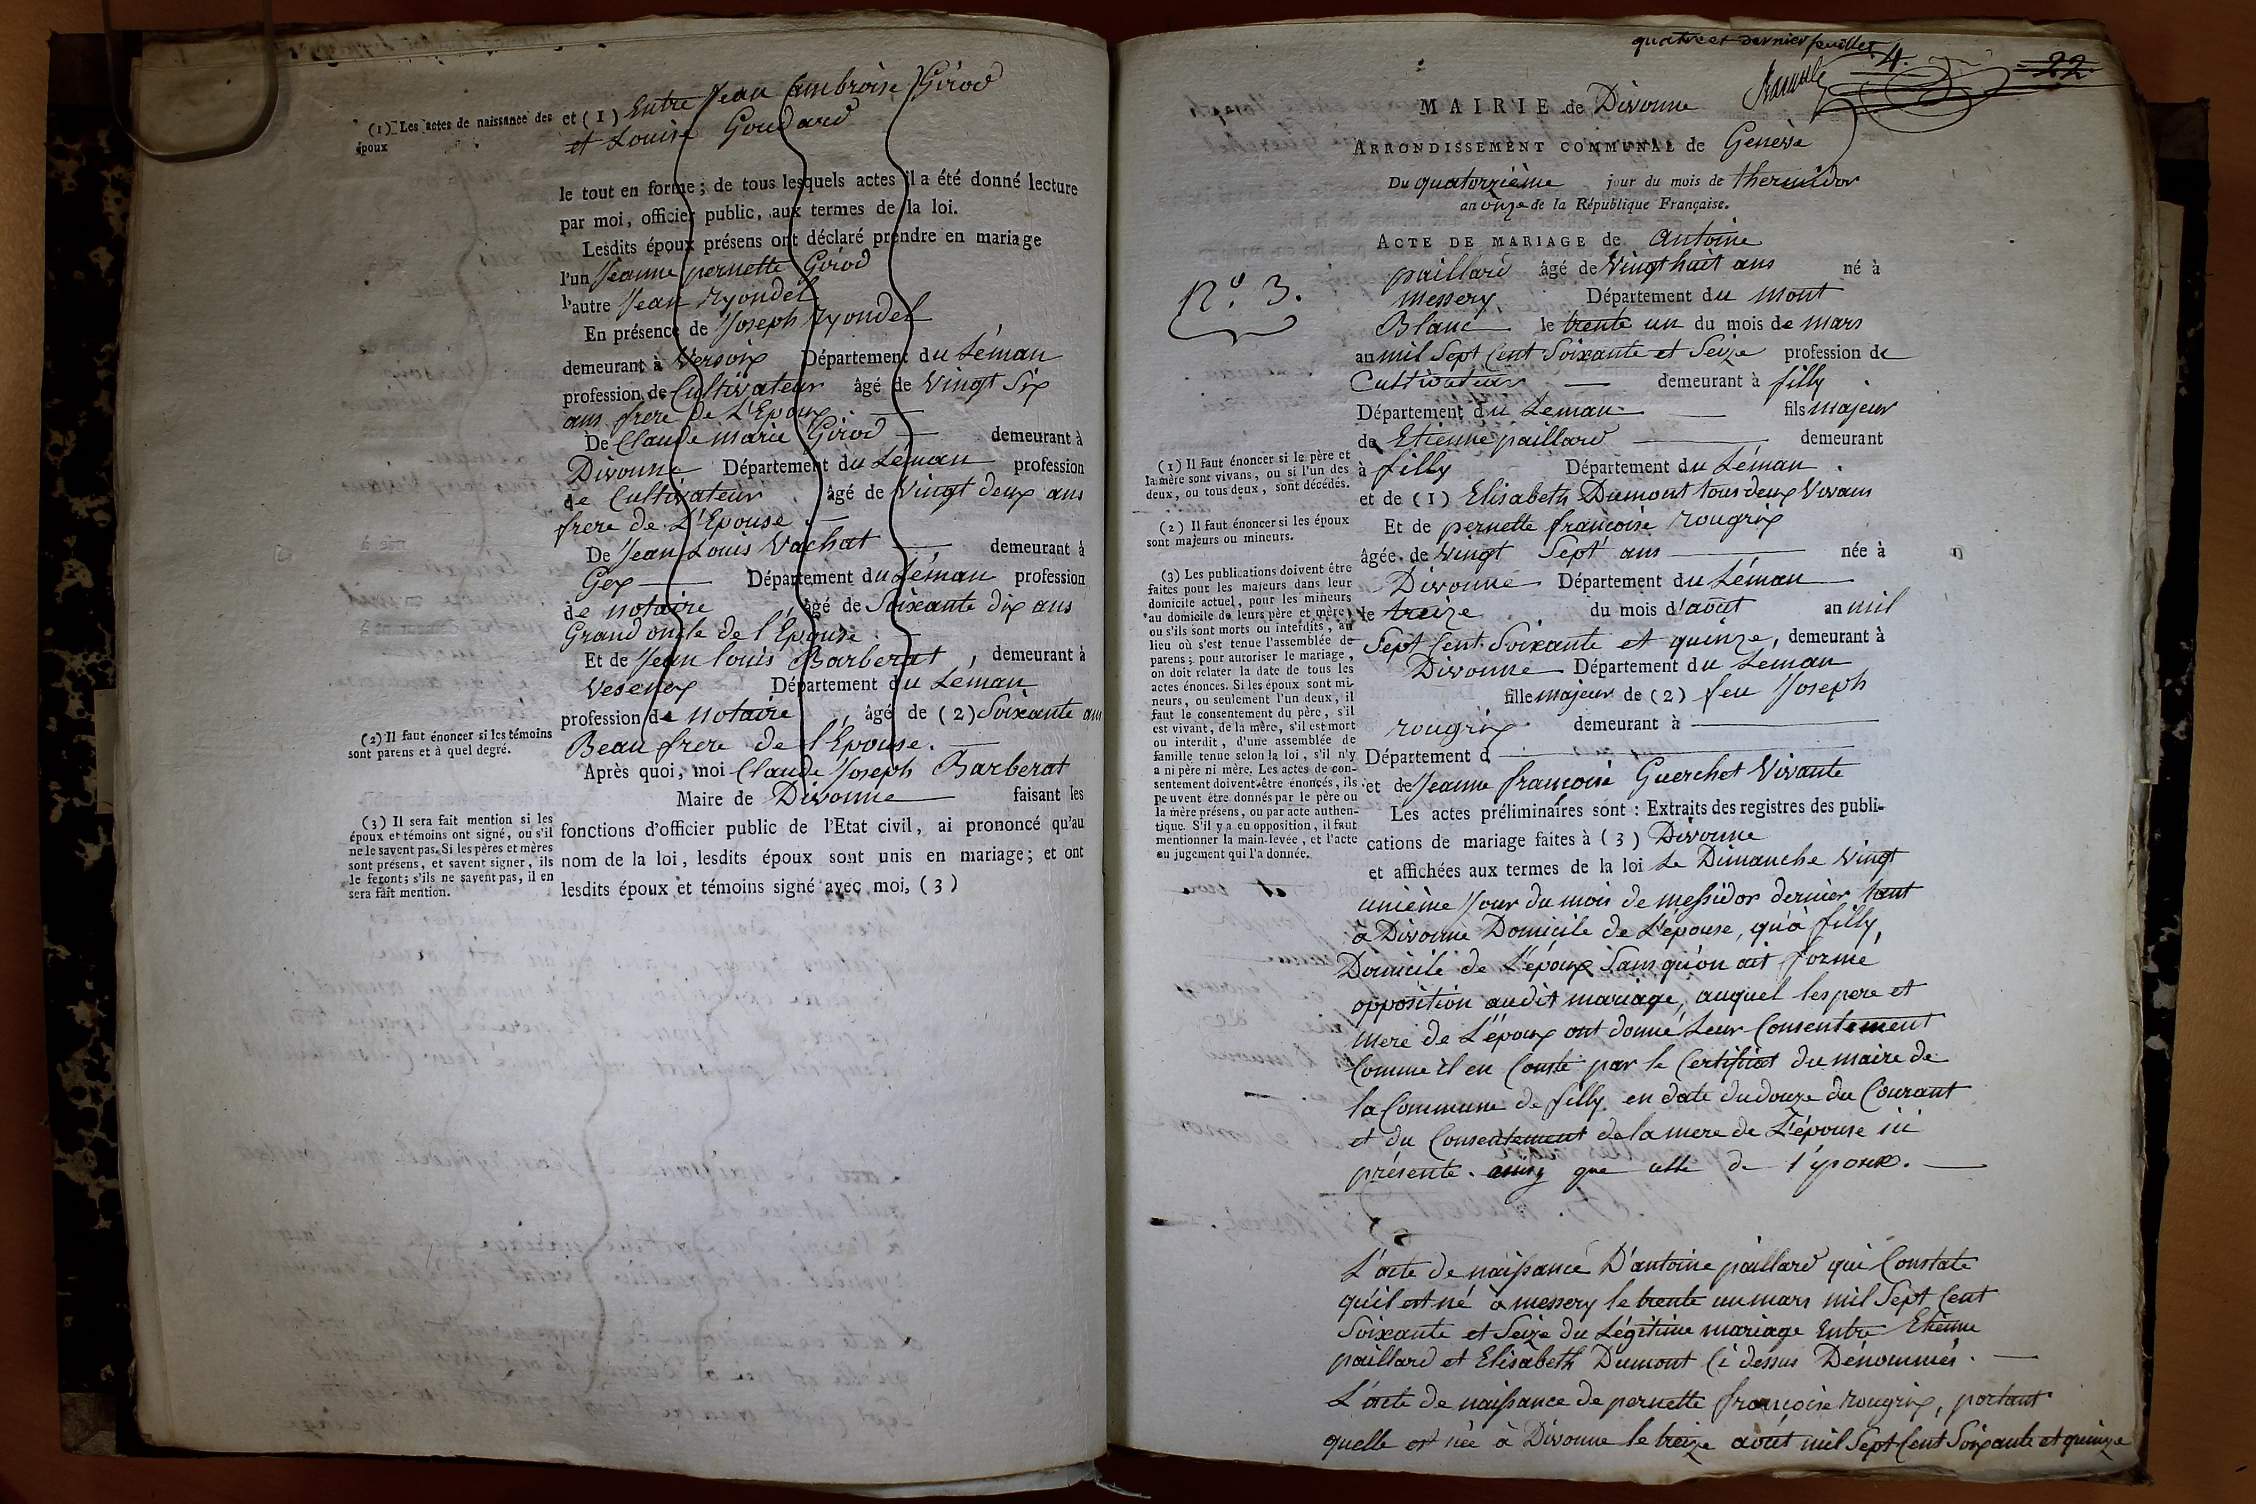 (1) Les actes de naissance des
époux
et (1) Entre Jean Ambroise Girod
et Louise Goudard
le tout en forme ; de tous lesquels actes il a été donné lecture
par moi, officier public, aux termes de la loi.
Lesdits époux présens ont déclaré prendre en mariage
l'un Jeanne pernette Girod
l'autre Jean Ryondel
En présence de Joseph Ryondel
demeurant à Versoix Département du Léman
profession de Cultivateur âgé de Vingt Six
ans frere de L'Epoux
De Claude marie Girod demeurant à
Divonne Département du Léman profession
de Cultivateur âgé de Vingt deux ans
frere de L'Epouse.
De Jean Louis Vachat demeurant à
Gex Département du Léman profession
de notaire âgé de Soixante dix ans
Grand oncle de l'Epouse
Et de Jean louis Barberat, demeurant à
Vesenex Département du Léman
profession de notaire âgé de (2) Soixante ans
Beau frere de l'Epouse.
(2) Il faut énoncer si les témoins
sont parens et à quel degré.
Après quoi, moi Claude Joseph Barberat
Maire de Divonne faisant les
fonctions d'officier public de l'Etat civil, ai prononcé qu'au
nom de la loi, lesdits époux sont unis en mariage; et ont
lesdits époux et témoins signé avec moi, (3)
(3) Il sera fait mention si les
époux et témoins ont signé, ou s'il
ne le savent pas. Si les pères et mères
sont présens, et savent signer, ils
le feront; s'ils ne savent pas, il en
sera fait mention.
quatre et dernier feuillet
4.
22
MAIRIE de Divonne
ARRONDISSEMENT COMMUNAL de Genève
Du quatorzième jour du mois de thermidor
an onze de la République Française.
N.° 3.
ACTE DE MARIAGE de antoine
paillard âgé de Vingt huit ans né à
messery Département du mont
Blanc le trente un du mois de mars
an mil Sept Cent Soixante et Seize profession de
Cultivateur demeurant à filly
Département du Leman fils majeur
de Etienne paillard demeurant
à filly Département du Léman.
et de (1) Elisabeth Dumont tous deux Vivans
Et de pernette françoise rougrix
âgée de Vingt Sept ans née à
Divonne Département du Léman
le treize du mois d'août an mil
Sept Cent Soixante et quinze, demeurant à
Divonne Département du Léman
fille majeur de (2) feu Joseph
rougrix demeurant à
Département d
et de Jeanne françoise Guerchet Vivante
Les actes préliminaires sont : Extraits des registres des publi-
cations de mariage faites à (3) Divonne
et affichées aux termes de la loi Le Dimanche Vingt
unième Jour du mois de messidor dernier tant
à Divonne Domicile de L'épouse, qu'à filly,
Domicile de L'époux Sans qu'on ait formé
opposition audit mariage, auquel les pere et
mere de L'époux ont donné Leur Consentement
Comme il en Conste par le Certificat du maire de
la Commune de filly en date du douze du Courant
et du Consentement de la mere de L'épouse ici
présente. ainsy que celle de l'époux.
L'acte de naissance D'antoine paillard qui Constate
qu'il est né à messery le trente un mars mil Sept Cent
Soixante et Seize du Légitime mariage Entre Etienne
paillard et Elisabeth Dumont Ci dessus Dénommés.
L'acte de naissance de pernette françoise rougrix, portant
quelle est née à Divonne le treize août mil Sept Cent Soixante et quinze
(1) Il faut énoncer si le père et
la mère sont vivans, ou si l'un des
deux, ou tous deux, sont décédés.
(2) Il faut énoncer si les époux
sont majeurs ou mineurs.
(3) Les publications doivent être
faites pour les majeurs dans leur
domicile actuel, pour les mineurs
au domicile de leurs père et mère;
ou s'ils sont morts ou interdits, au
lieu où s'est tenue l'assemblée de
parens; pour autoriser le mariage,
on doit relater la date de tous les
actes énonces. Si les époux sont mi-
neurs, ou seulement l'un deux, il
faut le consentement du père, s'il
est vivant, de la mère, s'il est mort
ou interdit, d'une assemblée de
famille tenue selon la loi, s'il n'y
a ni père ni mère. Les actes de con-
sentement doivent être énoncés, ils
peuvent être donnés par le père ou
la mère présens, ou par acte authen-
tique. S'il y a eu opposition, il faut
mentionner la main-levée, et l'acte
ou jugement qui l'a donnée.